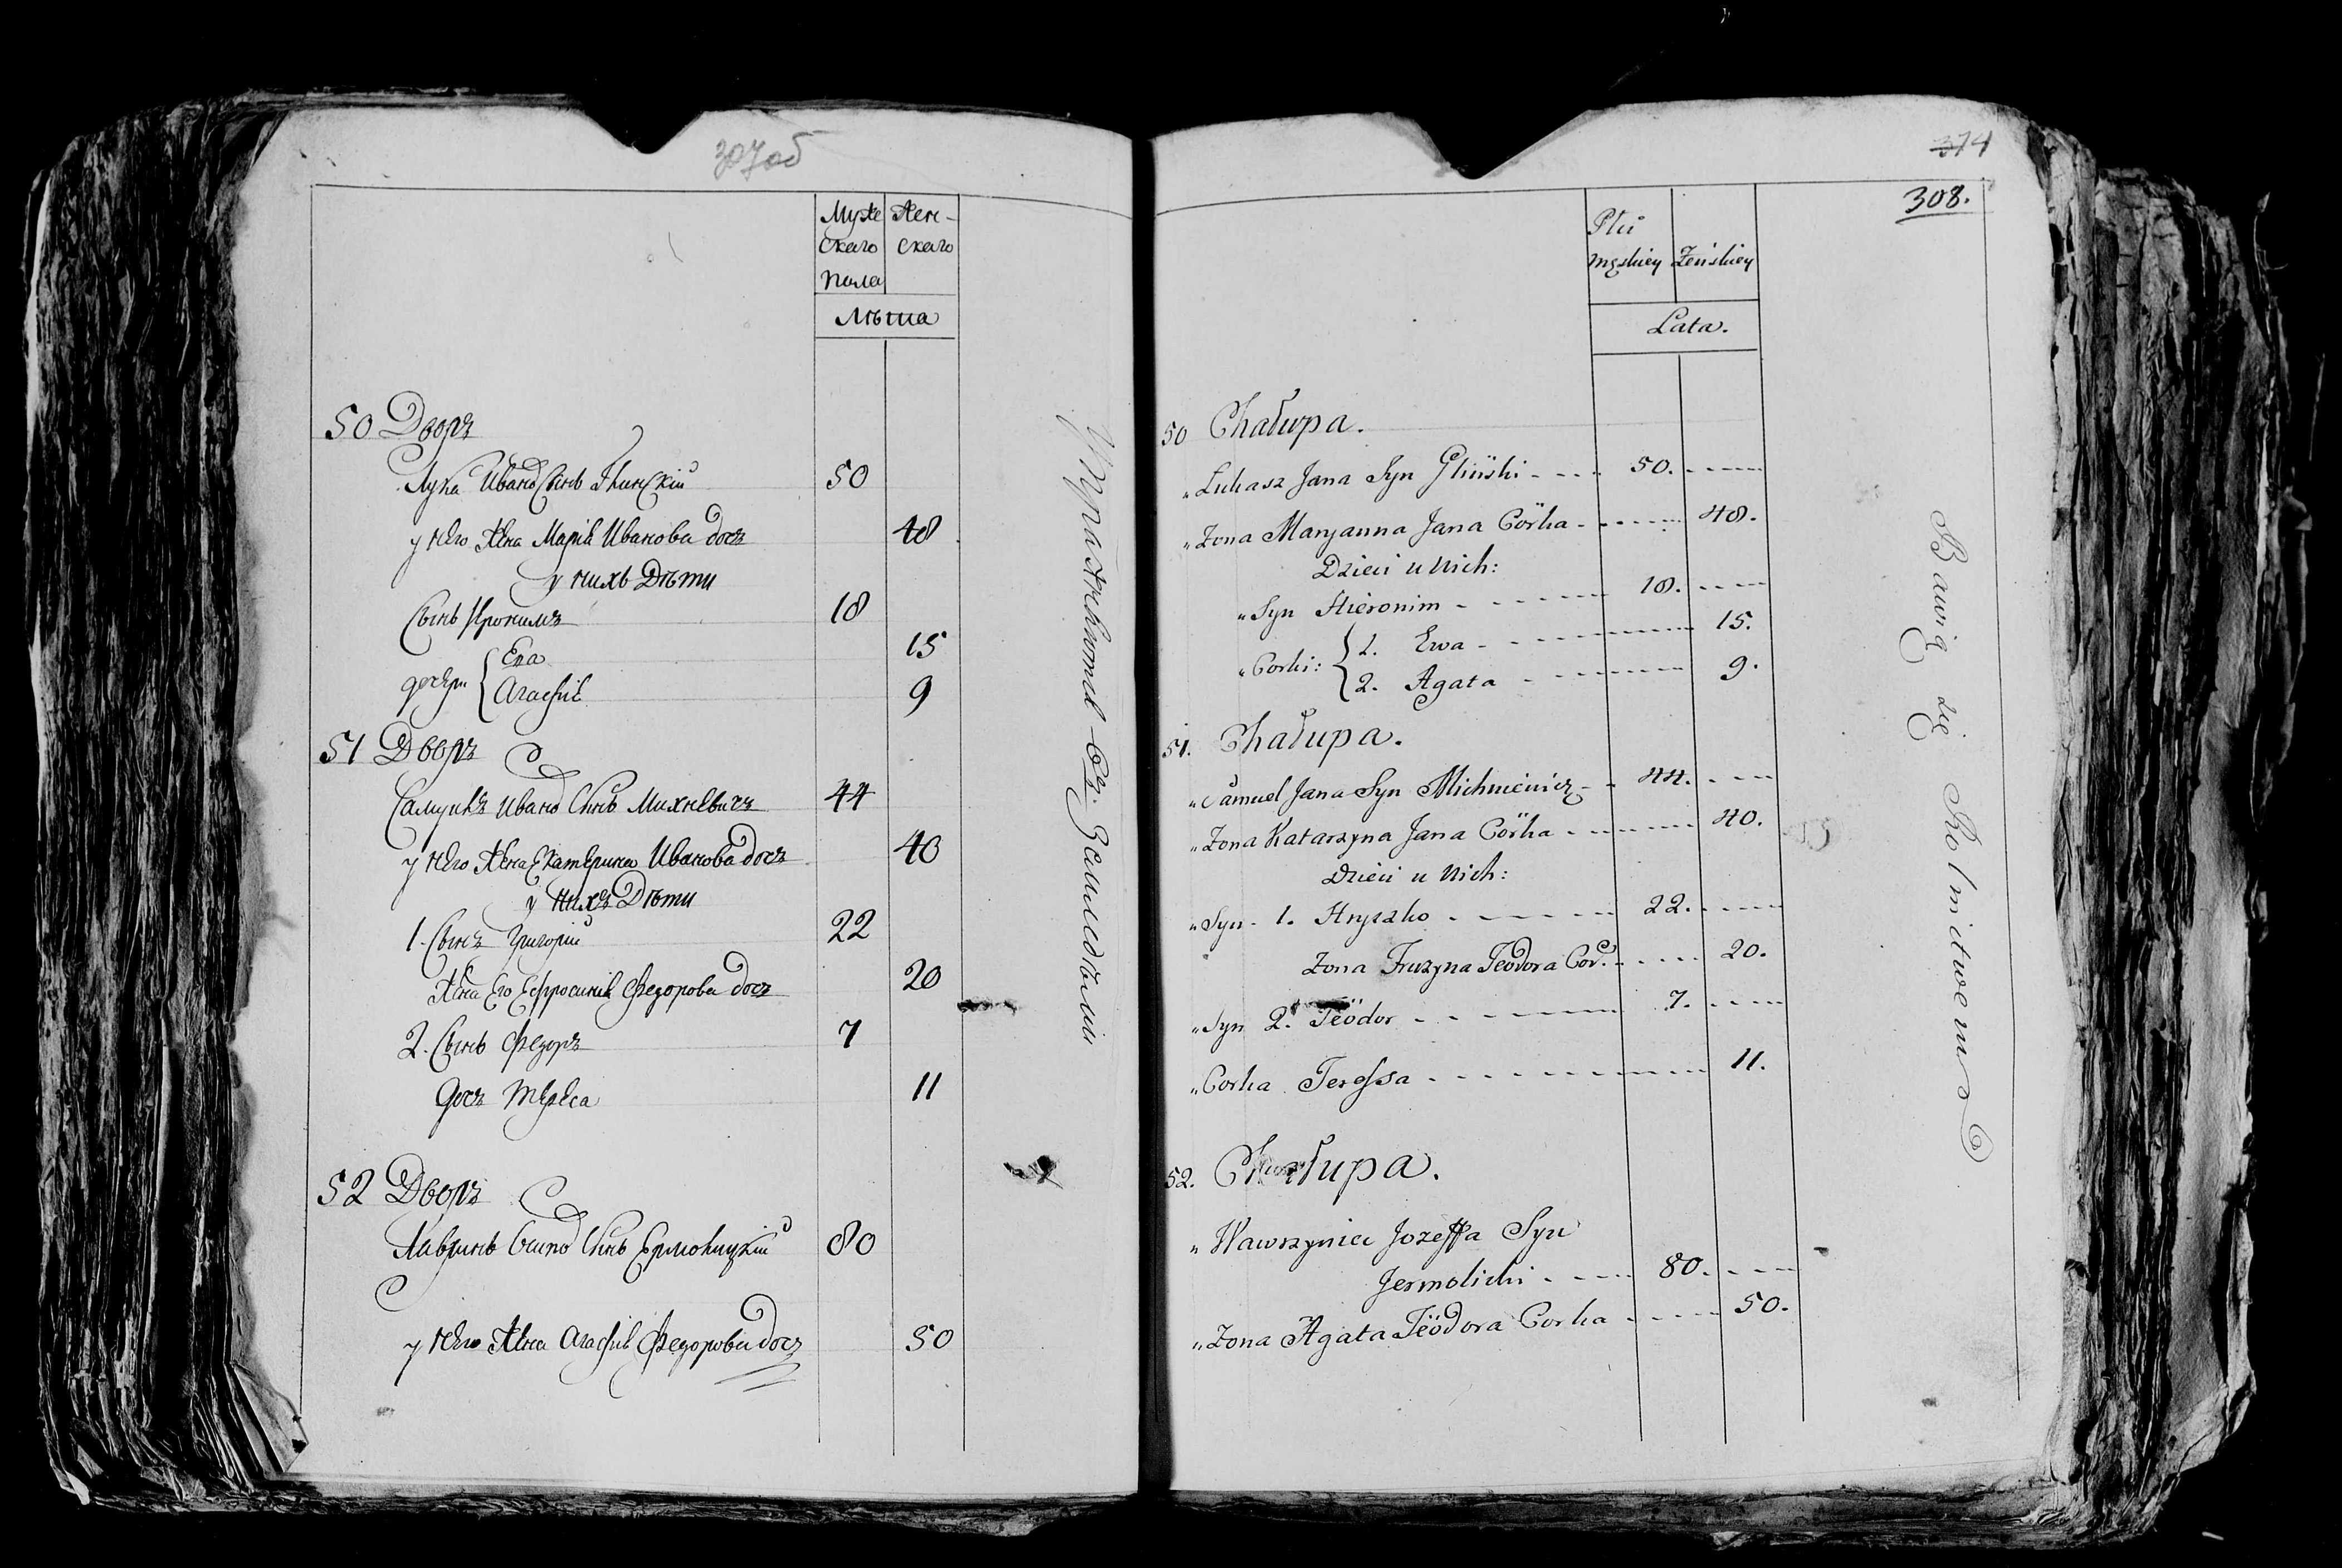 307 об
Муже Жен-
скаго скаго
пола
Лѣта
50 Дворъ
Лука Иванов Сынъ Глинскій 50
у него Жена Марія Иванова дочь 48
у нихъ Дѣти
Сынъ Ироним 18
дочери Ева 15
Агафія 9
51 Дворъ
Самуилъ Иванов Сынъ Михневичъ 44
у него Жена Екатерина Иванова дочь 40
у нихъ Дѣти
1. Сынъ Григорій 22
Жена его Ефросинія Федорова дочь 20
2. Сынъ Федоръ 7
дочь Тереса 11
52 Дворъ
Лавринъ Осипов Сынъ Ермолицкій 80
у него Жена Агафія Федорова дочь 50
Упражняютца Земледѣлием
374
308.
Płci
męskiey Żeńskiey
Lata.
50 Chałupa.
„Łukasz Jana Syn Gliński 50.
„Zona Maryanna Jana Córka 48.
Dzieci u Nich:
„Syn Hieronim 18.
„Corki: 1. Ewa 15.
2. Agata 9.
51. Chałupa.
„Samuel Jana Syn Michniewicz 44.
„Zona Katarzyna Jana Córka 40.
Dzieci u Nich:
„Syn 1. Hryszko 22.
Zona Fruzyna Teodora Cor. 20.
„Syn 2. Teödor 7.
„Corka Teressa 11.
52. Chałupa.
„Wawrzyniec Jozeffa Syn
Jermolicki 80.
„Zona Agata Teödora Corka 50.
Bawią się Rolnitwem